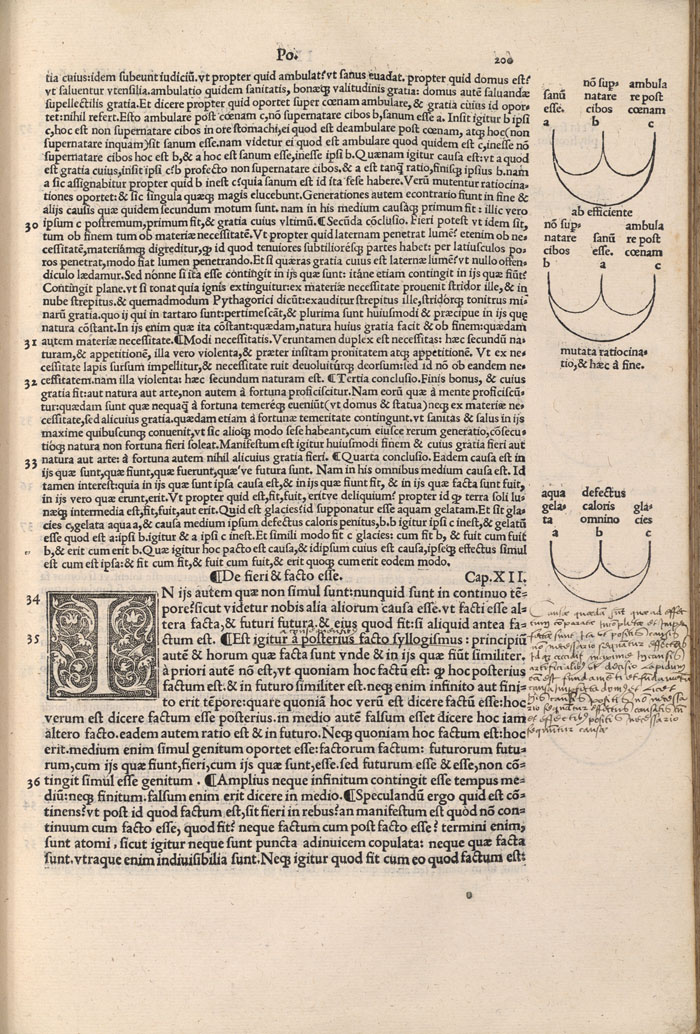 Po.
200
tia cuius:idem subeunt iudiciū.vt propter quid ambulat?vt sanus euadat. propter quid domus est?
vt saluentur vtensilia.ambulatio quidem sanitatis, bonæq; valitudinis gratia: domus autē saluandæ
supellectilis gratia.Et dicere propter quid oportet super cœnam ambulare, & gratia cuius id opor-
tet:nihil refert.Esto ambulare post cœnam c,nō supernatare cibos b,sanum esse a. Insit igitur b ipsi
c,hoc est non supernatare cibos in ore stomachi,ei quod est deambulare post cœnam, atq; hoc(non
supernatare inquam)sit sanum esse.nam videtur ei quod est ambulare quod quidem est c,inesse nō
supernatare cibos hoc est b,& a hoc est sanum esse,inesse ipsi b.Quænam igitur causa est:vt a quod
est gratia cuius,insit ipsi c?b profecto non supernatare cibos.& a est tanq̄ ratio,finisq; ipsius b.nam
a sic assignabitur propter quid b inest c?quia sanum est id ita sese habere.Verū mutentur ratiocina-
tiones oportet:& sic singula quæq; magis elucebunt.Generationes autem econtrario fiunt in fine &
alijs causis quæ quidem secundum motum sunt. nam in his medium causāq; primum fit: illic vero
30 ipsum c postremum,primum fit,& gratia cuius vltimū.¶Secūda cōclusio. Fieri potest vt idem sit,
tum ob finem tum ob materiæ necessitatē. Vt propter quid laternam penetrat lumē? etenim ob ne-
cessitatē,materiāmq; digreditur,q; id quod tenuiores subtiliorēsq; partes habet: per latiusculos po-
ros penetrat,modo fiat lumen penetrando.Et si quæras gratia cuius est laternæ lumē?vt nullo offen-
diculo lædamur.Sed nonne si ita esse contingit in ijs quæ sunt: itāne etiam contingit in ijs quæ fiūt?
Contingit plane.vt si tonat quia ignis extinguitur:ex materiæ necessitate prouenit stridor ille,& in
nube strepitus.& quemadmodum Pythagorici dicūt:exauditur strepitus ille,stridorq; tonitrus mi-
narū gratia.quo ij qui in tartaro sunt:pertimescāt,& plurima sunt huiusmodi & præcipue in ijs quę
natura cōstant.In ijs enim quæ ita cōstant:quædam,natura huius gratia facit & ob finem:quædam
31 autem materiæ necessitate.¶Modi necessitatis.Veruntamen duplex est necessitas: hæc secundū na-
turam,& appetitionē, illa vero violenta,& præter insitam pronitatem atq; appetitionē. Vt ex ne-
cessitate lapis sursum impellitur,& necessitate ruit deuoluiturq; deorsum:sed id nō ob eandem ne-
32 cessitatem.nam illa violenta: hæc secundum naturam est. ¶Tertia conclusio.Finis bonus, & cuius
gratia fit:aut natura aut arte,non autem à fortuna proficiscitur.Nam eorū quæ à mente proficiscū-
tur:quædam sunt quæ nequaq̄ à fortuna temeréq; eueniūt(vt domus & statua)neq; ex materiæ ne-
cessitate,sed alicuius gratia.quædam etiam à fortunæ temeritate contingunt.vt sanitas & salus in ijs
maxime quibuscunq; conuenit,vt sic alioq; modo sese habeant,cum eiusce rerum generatio,cōsecu-
tioq; natura non fortuna fieri soleat.Manifestum est igitur huiusmodi finem & cuius gratia fieri aut
natura aut arte: à fortuna autem nihil alicuius gratia fieri. ¶Quarta conclusio. Eadem causa est in
33 ijs quæ sunt,quæ fiunt,quæ fuerunt,quæ've futura sunt. Nam in his omnibus medium causa est. Id
tamen interest:quia in ijs quæ sunt ipsa causa est,& in ijs quæ fiunt fit, & in ijs quæ facta sunt fuit,
in ijs vero quæ erunt,erit.Vt propter quid est,fit,fuit, eritve deliquium? propter id q; terra soli lu-
næq; intermedia est,fit,fuit,aut erit.Quid est glacies?id supponatur esse aquam gelatam.Et sit gla-
cies c,gelata aqua a,& causa medium ipsum defectus caloris penitus,b.b igitur ipsi c inest,& gelatū
esse quod est a:ipsi b.igitur & a ipsi c inest.Et simili modo fit c glacies: cum fit b, & fuit cum fuit
b,& erit cum erit b.Quæ igitur hoc pacto est causa,& id ipsum cuius est causa,ipseq; effectus simul
est cum est ipsa:& fit cum fit,& fuit cum fuit,& erit quoq; cum erit eodem modo.
¶De fieri & facto esse. Cap.XII.
34 IN ijs autem quæ non simul sunt:nunquid sunt in continuo tē-
pore?sicut videtur nobis alia aliorum causa esse.vt facti esse al-
tera facta,& futuri futura.& eius quod fit:si aliquid antea fa-
35 ctum est. ¶Est igitur à posterius facto syllogismus: principiū
autē & horum quæ facta sunt vnde & in ijs quæ fiūt similiter.
à priori autē nō est,vt quoniam hoc factū est: q; hoc posterius
factum est.& in futuro similiter est.neq; enim infinito aut fini-
to erit tēpore:quare quoniā hoc verū est dicere factū esse:hoc
verum est dicere factum esse posterius.in medio autē falsum esset dicere hoc iam
altero facto.eadem autem ratio est & in futuro.Neq; quoniam hoc factum est:hoc
erit.medium enim simul genitum oportet esse:factorum factum: futurorum futu-
rum,cum ijs quæ fiunt,fieri,cum ijs quæ sunt,esse.sed futurum esse & esse,non cō-
36 tingit simul esse genitum . ¶Amplius neque infinitum contingit esse tempus me-
diū:neq; finitum.falsum enim erit dicere in medio.¶Speculandū ergo quid est cō-
tinens?vt post id quod factum est,sit fieri in rebus?an manifestum est quòd nō con-
tinuum cum facto esse, quod fit? neque factum cum post facto esse? termini enim,
sunt atomi , sicut igitur neque sunt puncta adinuicem copulata: neque quæ facta
sunt.vtraque enim indiuisibilia sunt.Neq; igitur quod fit cum eo quod factum est:
nō sup- ambula
sanū natare re post
esse. cibos cœnam
a b c
ab efficiente
nō sup- ambula
natare sanū re post
cibos esse. cœnam
b a c
mutata ratiocina-
tio,& hæc à fine.
aqua defectus
gela- caloris gla-
ta omnino cies
a b c